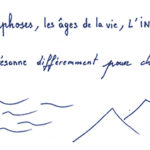 phoses, les âges de la vie, L'IN
ésonne différemment pour ch